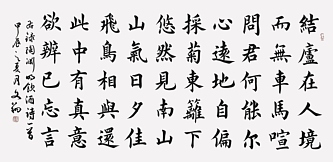 結廬在人境
而無車馬喧
問君何能尔
心遠地自偏
採菊東籬下
悠然見南山
山氣日夕佳
飛鳥相與還
此中有真意
欲辨已忘言
陶淵明飲酒詩一首
甲辰夏月文